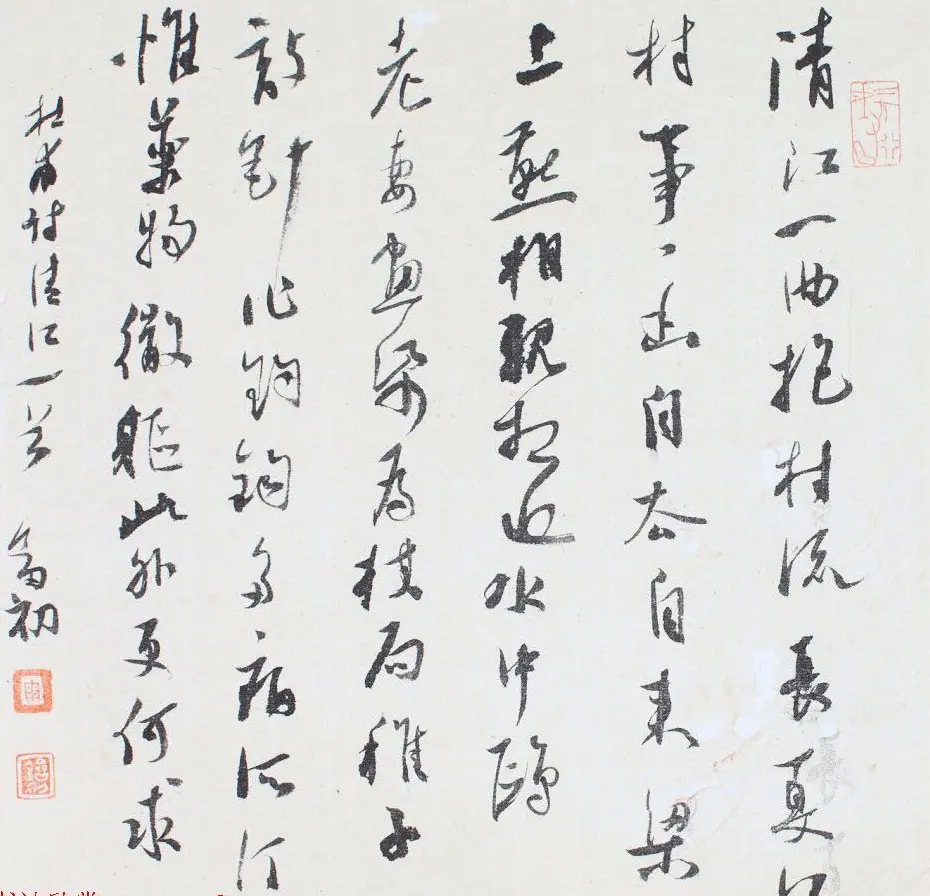 清江一曲抱村流長夏江
村事々幽自去自来梁
上燕相親相近水中鷗
老妻畫帋為棋局稚子
敲針作釣鈎多病所須
惟藥物微軀此外更何求
杜甫詩清江一首
初